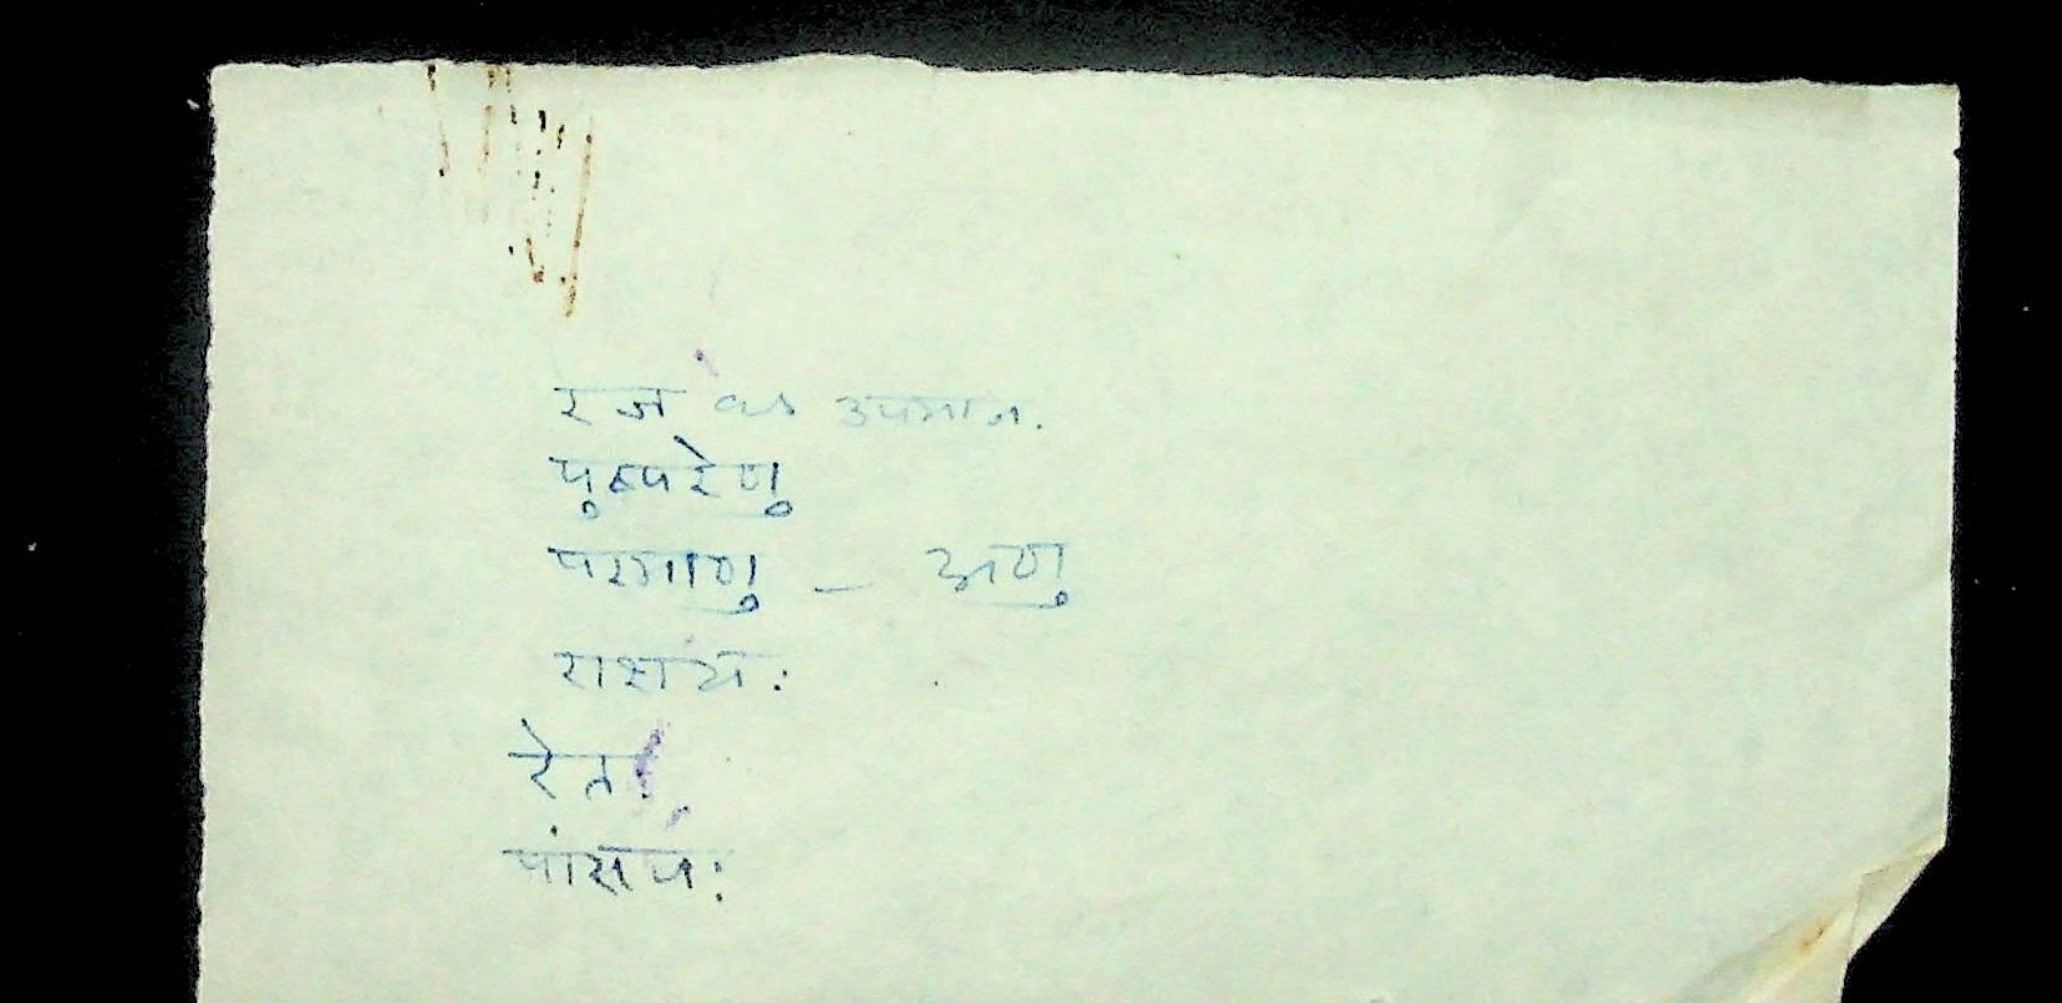 रज के उपमान.
पुष्परेणु
परमाणु - अणु
राशयः
रेत
पांसवः